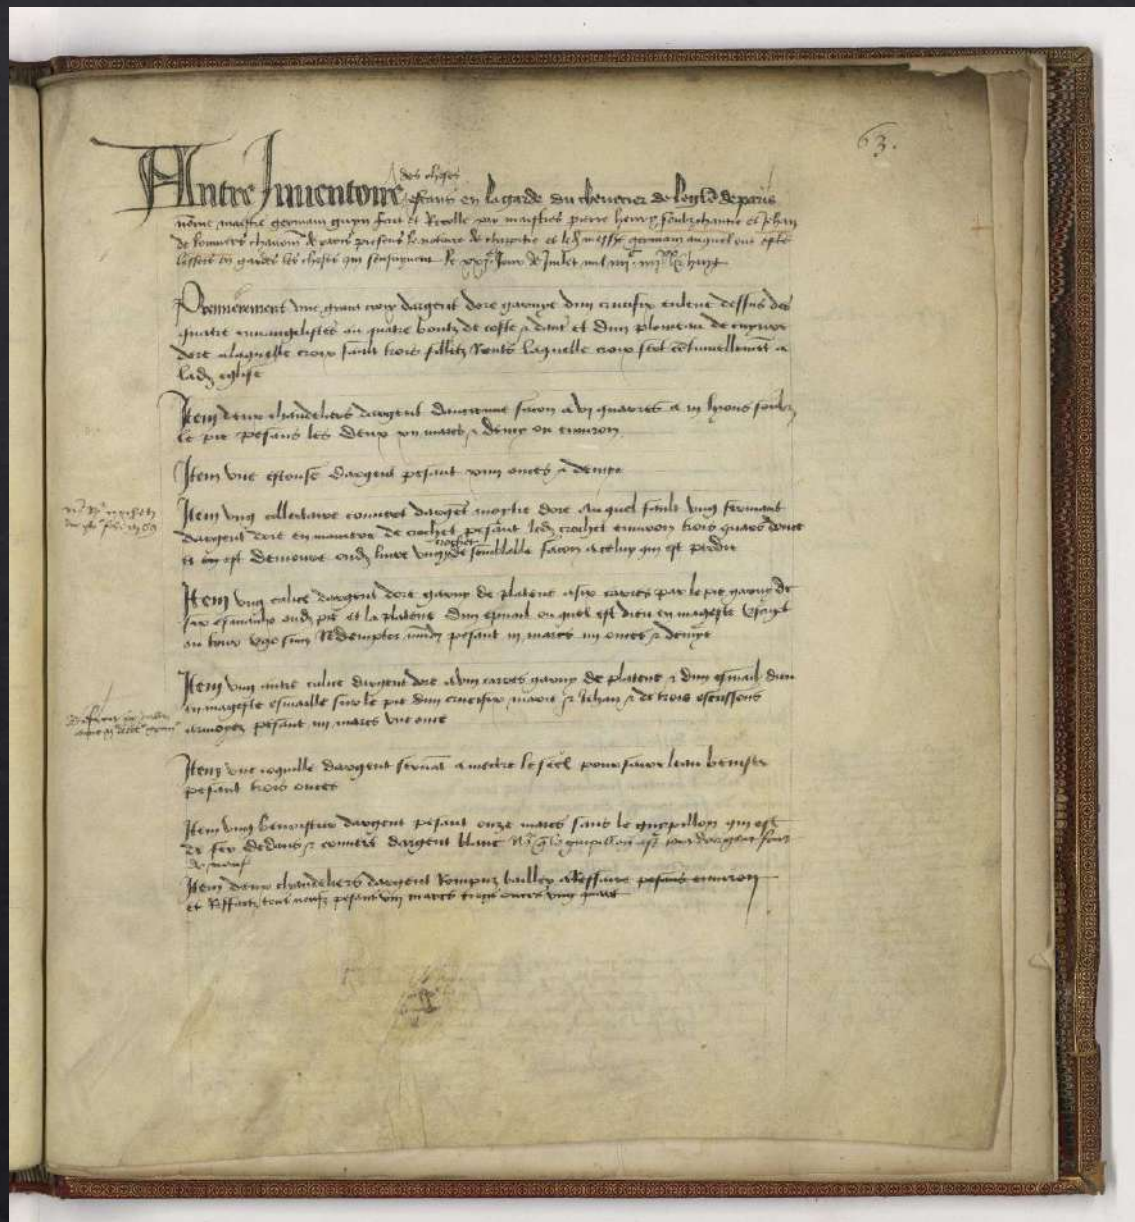 63.
des choses
Autre Inventoire estans en la garde du chevecier de leglise de paris
nommé maistre germain guyn fait et Recolle par maistres pierre henry soubzchantre et Jehan
de louviers chanoines de paris presens le notaire de chapitre et led messe germain auquel ont esté
lessees en garde les choses qui sensuyvent le xxje Jour de Juilet mil iiijc iiijxx huyt
Premierement une grant croix dargent doré garnye dun crucifix enlevé dessus des
quatre evangelistes au quatre boutz de coste a dant et dun plomeau de cuyvre
doré a laquelle croix fault trois filletz Rons laquelle croix sert continuellement a
lad eglise
Item deux chandeliers dargent dancienne facon a vj quarrés a iij lyons soubz
le pie pesans les deux xij marcs et demy ou environ
Item une esconse dargent pesant xiiij onces et demie
Item ung collectaire couvert dargent moytie doré auquel fault ung fermant
dargent doré en maniere de crochet pesant led crochet environ trois quars donce
et en est demouré oud livre ung de semblable facon a celuy qui est perdu
crochet
Item ung calice dargent doré garny de platene a six carrés par le pie garny de
six esmaulx oud pie et la platene dun esmail ou quel est dieu en magesté escript
au tour ego sum Redemptor mundi pesant iij marcs iiij onces et demye
Item ung autre calice dargent doré a viij carrés garny de platene et dun esmail dieu
en magesté esmaillé sur le pie dun crucifix marie et Jehan et de trois escussons
armoyez pesant iiij marcs une once
Item une coquille dargent servant a mectre le seel pour faire leau benoiste
pesant trois onces
Item ung benoistier dargent pesant onze marcs sans le guepillon qui est
de fer dedans et couvert dargent blanc le guipillon est tout dargent fait
de neuf
Item deux chandeliers dargent Rompuz baillez a Reffaire pesans environ
et Reffaictz tout neufz pesant viij marcs trois onces ung quart